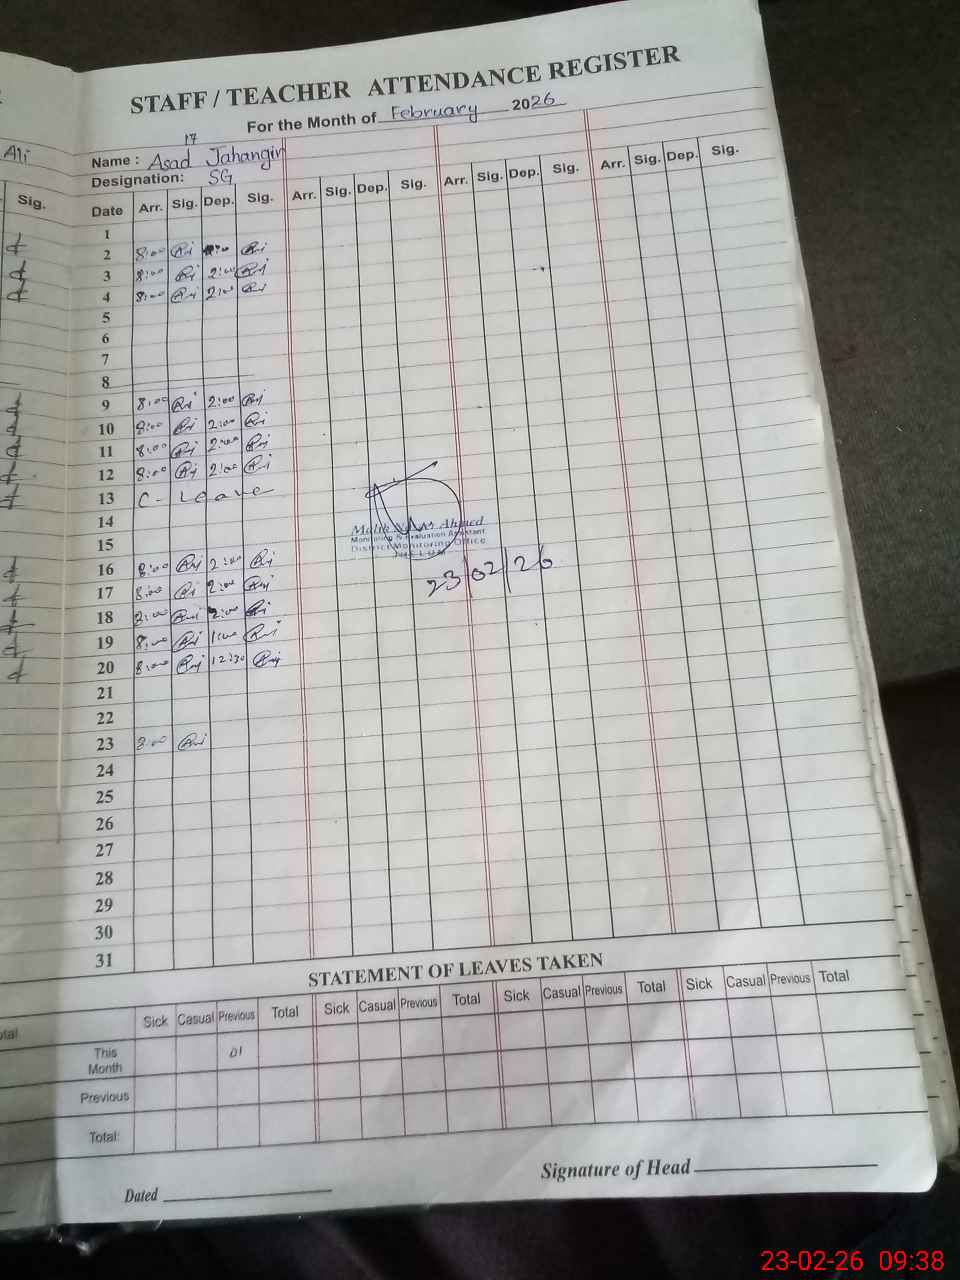 STAFF / TEACHER ATTENDANCE REGISTER
For the Month of February 2026
17
Name : Asad Jahangir
Designation: SG
Ali
Sig.
Date Arr. Sig. Dep. Sig. Arr. Sig. Dep. Sig. Arr. Sig. Dep. Sig. Arr. Sig. Dep. Sig.
1
2 8:00
3 8:00 2:00
4 8:00 2:00
5
6
7
8
9 8:00 2:00
10 8:00 2:00
11 8:00 2:00
12 8:00 2:00
13 C - Leave
14
15
16 8:00 2:00
17 8:00 2:00
18 2:00
19 8:00 1:00
20 8:00 12:30
21
22
23 8:00
24
25
26
27
28
29
30
31
Malik Ahmed
Monitoring & Evaluation Assistant
District Monitoring Office
JHELUM
23/02/26
STATEMENT OF LEAVES TAKEN
Sick Casual Previous Total Sick Casual Previous Total Sick Casual Previous Total Sick Casual Previous Total
This Month 01
Previous
Total:
Signature of Head
Dated
23-02-26 09:38